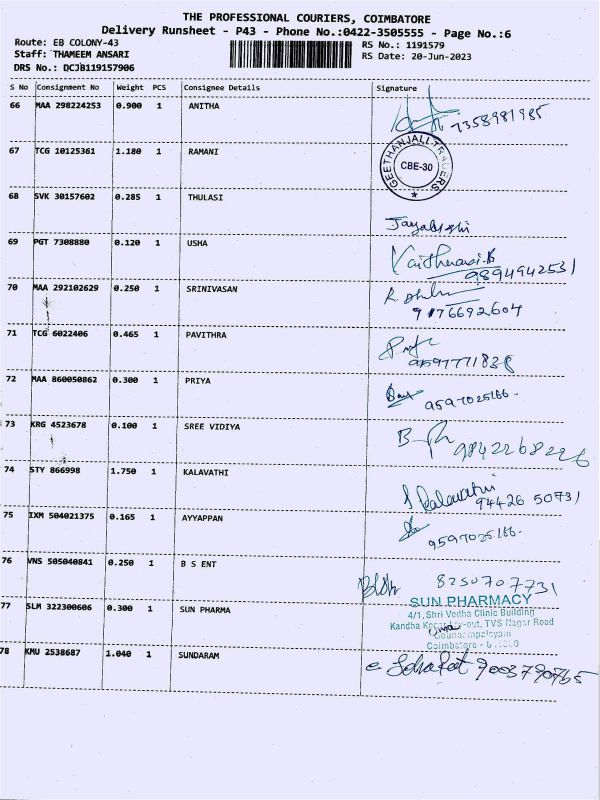 THE PROFESSIONAL COURIERS, COIMBATORE
Delivery Runsheet - P43 - Phone No.:0422-3505555 - Page No.:6
Route: EB COLONY-43
RS No.: 1191579
Staff: THAMEEM ANSARI
RS Date: 20-Jun-2023
DRS No.: DCJB119157906
S No Consignment No Weight PCS Consignee Details Signature
66 MAA 298224253 0.900 1 ANITHA
7358981985
67 TCG 10125361 1.180 1 RAMANI
GEETHANJALI TRADERS
CBE-30
68 SVK 30157602 0.285 1 THULASI
69 PGT 7308880 0.120 1 USHA
9894942531
70 MAA 292102629 0.250 1 SRINIVASAN
9176692604
71 TCG 6022406 0.465 1 PAVITHRA
9597771838
72 MAA 860050862 0.300 1 PRIYA
9597025166.
73 KRG 4523678 0.100 1 SREE VIDIYA
9842268226
74 STY 866998 1.750 1 KALAVATHI
Kalavathi
94426 50731
75 IXM 504021375 0.165 1 AYYAPPAN
9597025166.
76 VNS 505040841 0.250 1 B S ENT
8250707731
77 SLM 322300606 0.300 1 SUN PHARMA
SUN PHARMACY
4/1, Shri Vedha Clinic Building
Kandha Lay-out, TVS Nagar Road
Coimbatore -
78 KMU 2538687 1.040 1 SUNDARAM
9003790765